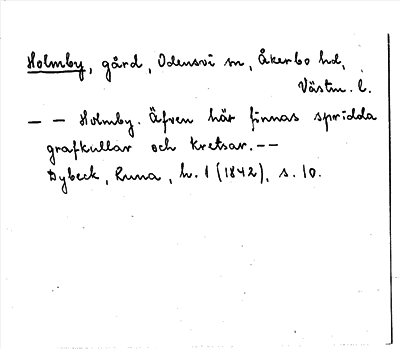 Holmby, gård, Odensvi sn, Åkerbo hd,
Västm. l.
— — Holmby. Äfven här finnas spridda
grafkullar och kretsar. --
Dybeck, Runa, h. 1 (1842), s. 10.